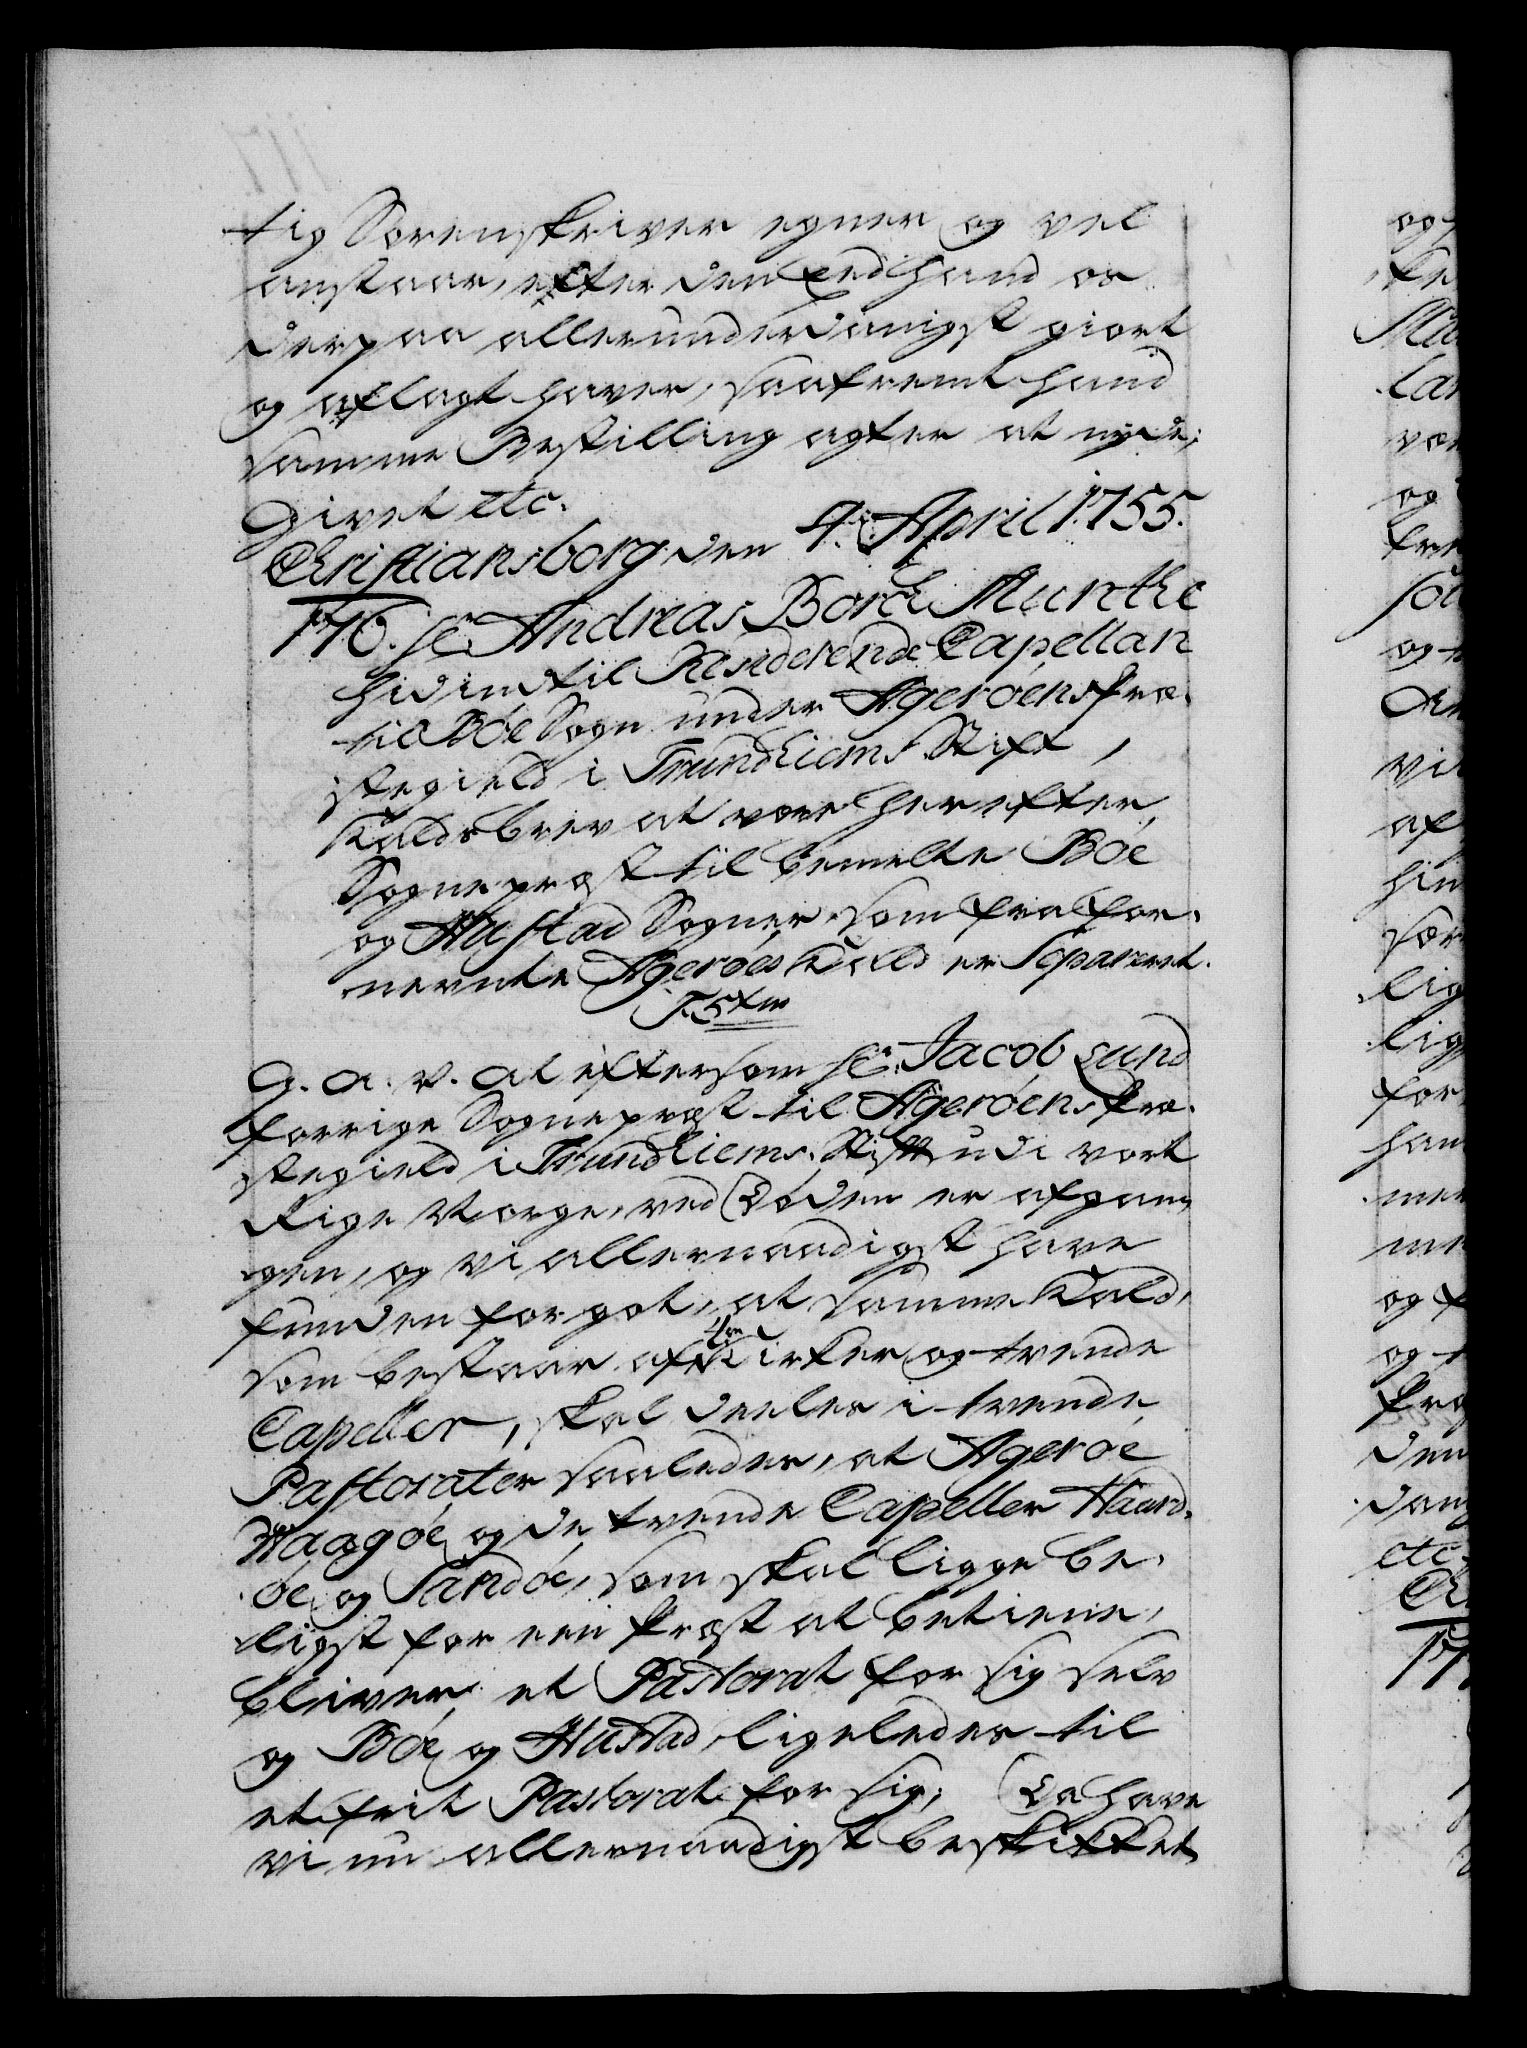 tig Sorenskriver egner og vel
anstaar, efter den Eed hand os
derpaa allerunderdanigst giort
og aflagt haver, saafremt hand
samme Bestilling agter at nyde;
Givet etc.
Christiansborg den 4. April 1755.
176. Hr. Andreas Borch Munthe
hidindtil Residerende Capellan
til Böe Sogn under Agerøens Præ-
stegield i Trundhiems Stift,
Kaldsbrev at være herefter
Sognepræst til bemelte Böe
og Hustad Sogner, som fra for-
nevnte Agerøes Kald er Separeret.
F. 5tus
G. A. V. at eftersom Hr. Jacob Lund
forrige Sognepræst til Agerøens Præ-
stegield i Trundhiems Stift udi vort
Rige Norge, ved Döden er afgaa-
gen, og vi allernaadigst have
funden for got, at samme Kald,
som bestaar af 4re Kirker og tvende
Capeller, skal deeles i tvende
Pastorater saaledes, at Agerøe
Waagøe og de tvende Capeller Haard-
øe og Sandøe, som skal ligge be-
ligst for een Præst at betiene,
bliver et Pastorat for sig selv
og Böe og Hustad ligeledes til
et frit Pastorat for sig; Da have
vi nu allernaadigst beskikket